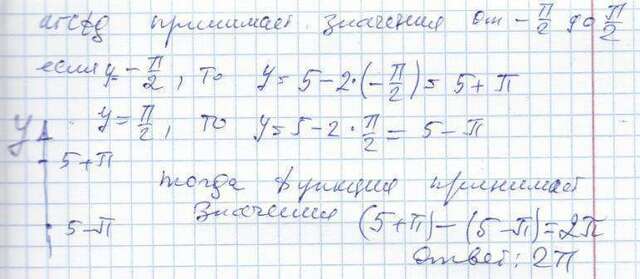 arctg принимает значения от -π/2 до π/2
если y=-π/2, то y=5-2·(-π/2)=5+π
y=π/2, то y=5-2·π/2=5-π
y
5+π
тогда функция принимает
5-π значения (5+π)-(5-π)=2π
Ответ: 2π